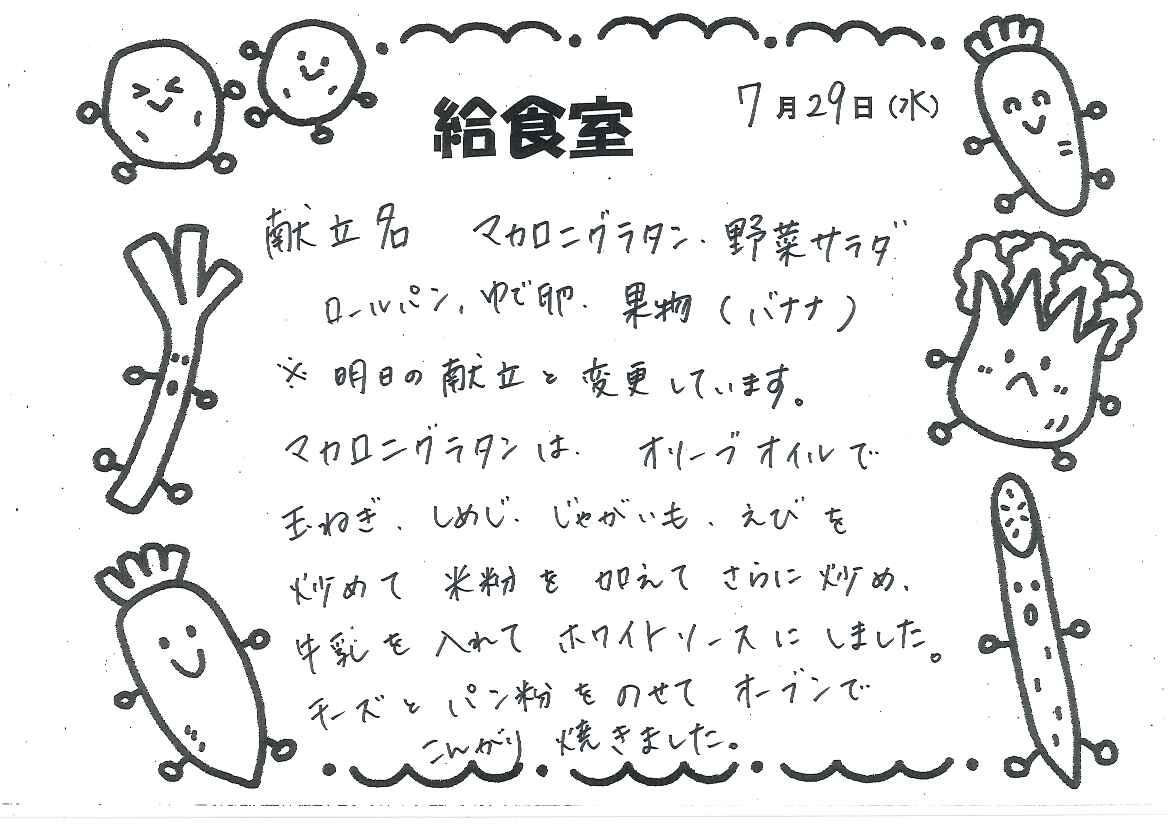 給食室
7月29日(水)
献立名 マカロニグラタン・野菜サラダ
ロールパン、ゆで卵、果物(バナナ)
※明日の献立と変更しています。
マカロニグラタンは、オリーブオイルで
玉ねぎ、しめじ、じゃがいも、えびを
炒めて米粉を加えてさらに炒め、
牛乳を入れてホワイトソースにしました。
チーズとパン粉をのせてオーブンで
こんがり焼きました。